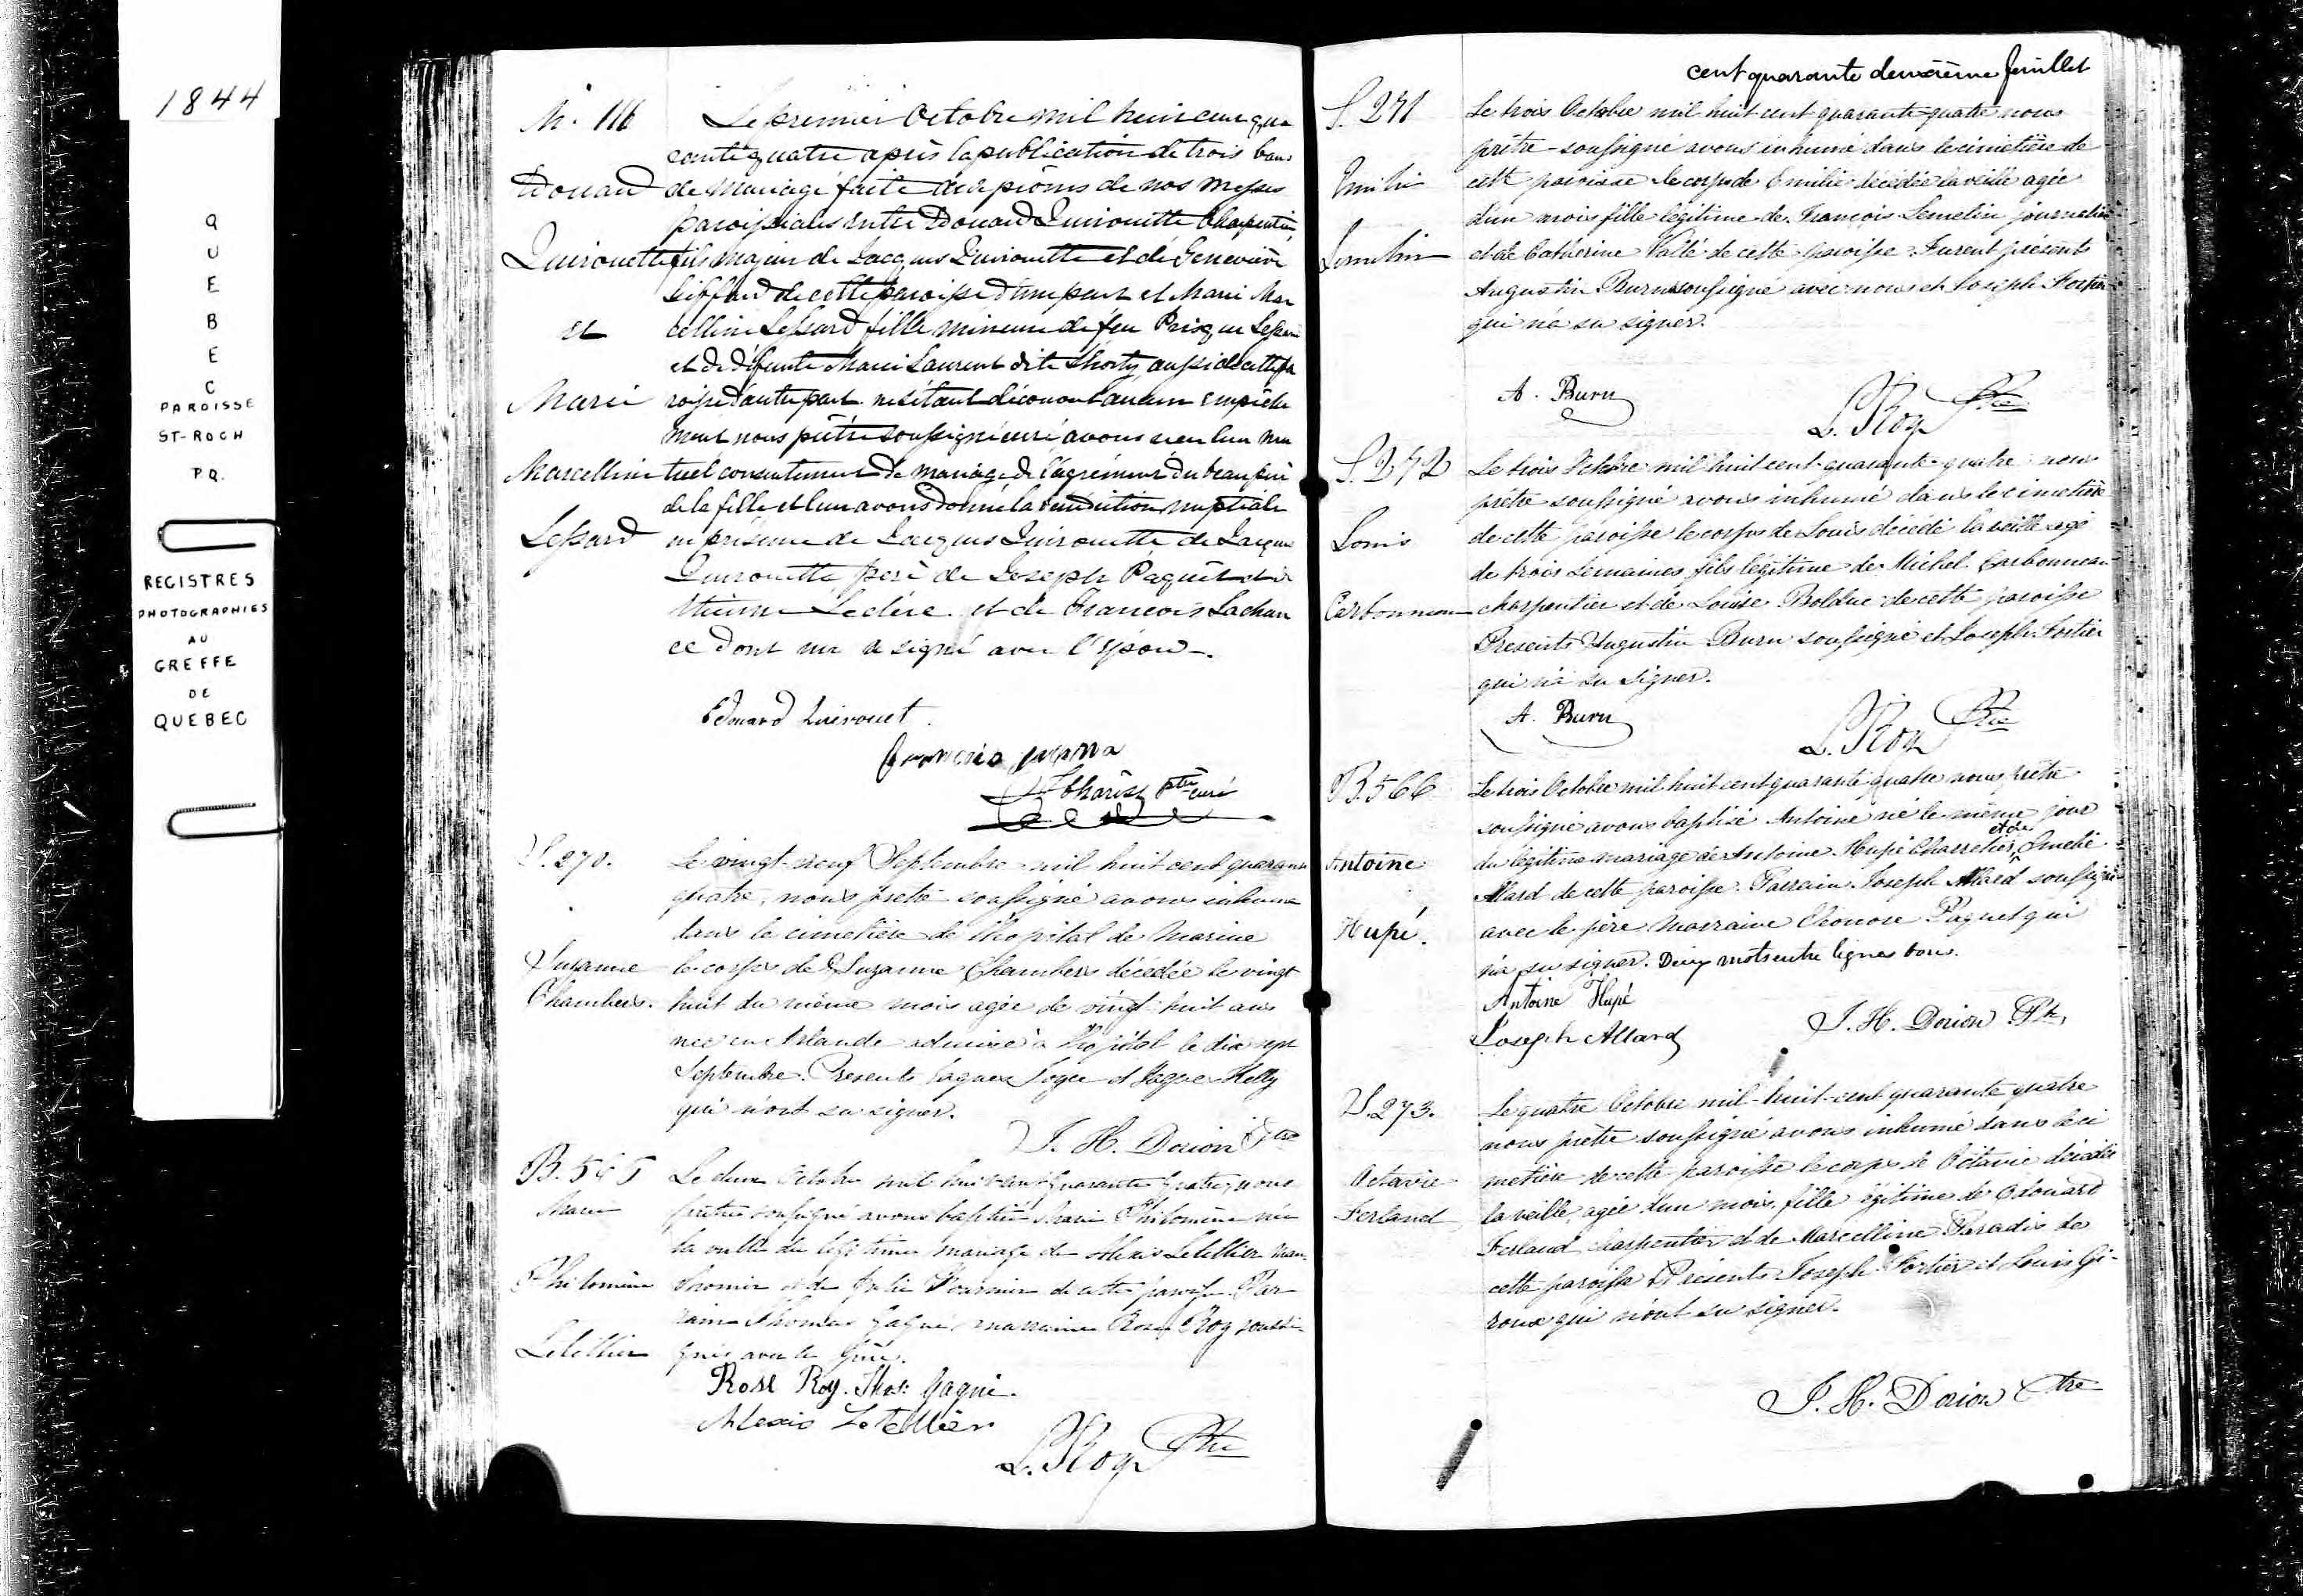 1844
QUEBEC
PAROISSE
ST-ROCH
P.Q.
REGISTRES
PHOTOGRAPHIES
AU
GREFFE
DE
QUEBEC
M. 116
Edouard
Quirouette
et
Marie
Marcelline
Lessard
Le premier Octobre mil huit cent qua
rante quatre après la publication de trois bans
de mariage faite aux prônes de nos messes
paroissiales entre Edouard Quirouette Charpentier,
fils majeur de Jacques Quirouette et de Geneviève
Giffard de cette paroisse d'une part et Marie Mar
celline Lessard fille mineure de feu Prisque Lessard
et de défunte Marie Laurent dite Shorty, aussi de cette pa
roisse d'autre part. ne s'étant découvert aucun empêche
ment nous prêtre soussigné curé avons reçu leur mu
tuel consentement de mariage de l'agrément du beau père
de la fille et leur avons donné la bénédiction nuptiale
en présence de Jacques Quirouette de Jacques
Quirouette père de Joseph Paquet et d'
Etienne Leclere et de François Lachan
ce dont un a signé avec l'époux.
Edouard Quirouet.
Z Charest ptre curé
S. 270.
Suzanne
Chambers.
Le vingt-neuf Septembre mil huit cent quarante
quatre, nous prêtre soussigné avons inhumé
dans le cimetière de l'hopital de Marine
le corps de Suzanne Chambers décédée le vingt
huit du même mois agée de vingt-huit ans
née en Irlande admise à l'hopital le dix sept
Septembre. Presents Jaques Joyce et Jaques Kelly
qui n'ont su signer.
J. H. Dorion Ptre
B. 565
Marie
Philomène
Letellier
Le deux Octobre mil huit cent quarante quatre, nous
prêtre soussigné avons baptisé Marie Philomène née
la veille du légitime mariage de Alexis Letellier
et de Julie Fournier de cette paroisse. Par
rain Thomas Gagné, marraine Rose Roy soussi
gnés avec le père.
Rose Roy. Thos: Gagné.
Alexis Letellier
L. Roy Ptre
cent quarante deuxième feuillet
S. 271
Emilie
Lemelin
Le trois Octobre mil huit cent quarante-quatre nous
prêtre-soussigné avons inhumé dans le cimetière de
cette paroisse le corps de Emilie décédée la veille agée
d'un mois fille légitime de François Lemelin journalier
et de Catherine Vallé de cette paroisse. Furent présents
Augustin Burn soussigné avec nous et Joseph Fortier
qui n'a su signer.
A. Burn
L. Roy Ptre
S. 272
Louis
Carbonneau
Le trois Octobre mil huit cent-quarante-quatre nous
prêtre soussigné avons inhumé dans le cimetière
de cette paroisse le corps de Louis décédé la veille agé
de trois semaines fils légitime de Michel Carbonneau
charpentier et de Louise Bolduc de cette paroisse
Presents Augustin Burn soussigné et Joseph Fortier
qui n'a su signer.
A. Burn
L. Roy Ptre
B. 566
Antoine
Hupé.
Le trois Octobre mil huit cent quarante quatre nous prêtre
soussigné avons baptisé Antoine né le même jour
et de
du légitime mariage de Antoine Hupé Charretier, Emelie
Allard de cette paroisse. Parrain Joseph Allard soussigné
avec le père marraine Eléonore Paquet qui
n'a su signer. Deux mots entre lignes bons.
Antoine Hupé
Joseph Allard
J. H. Dorion Ptre
S. 273.
Octavie
Ferland
Le quatre Octobre mil-huit-cent quarante quatre
nous prêtre soussigné avons inhumé dans le ci
metière de cette paroisse le corps de Octavie décédée
la veille, agée d'un mois, fille légitime de Edouard
Ferland charpentier et de Marcelline Paradis de
cette paroisse. Présents Joseph Fortier et Louis Gi-
roux qui n'ont su signer.
J. H. Dorion Ptre